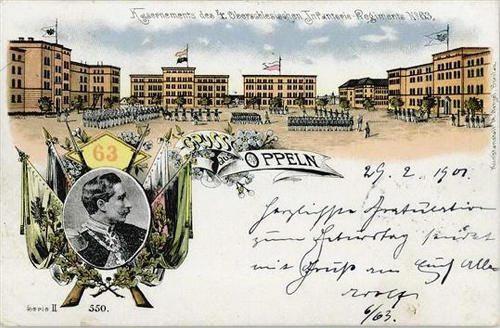 Kasernements des 4. Oberschlesischen Infanterie-Regiments No 63.
63
GRUSS
AUS
OPPELN
29. 2. 1901
Herzlichste Gratulation
zum Geburtstag
mit Gruß an Euch Alle
Adolf
6/63.
Serie II 550.